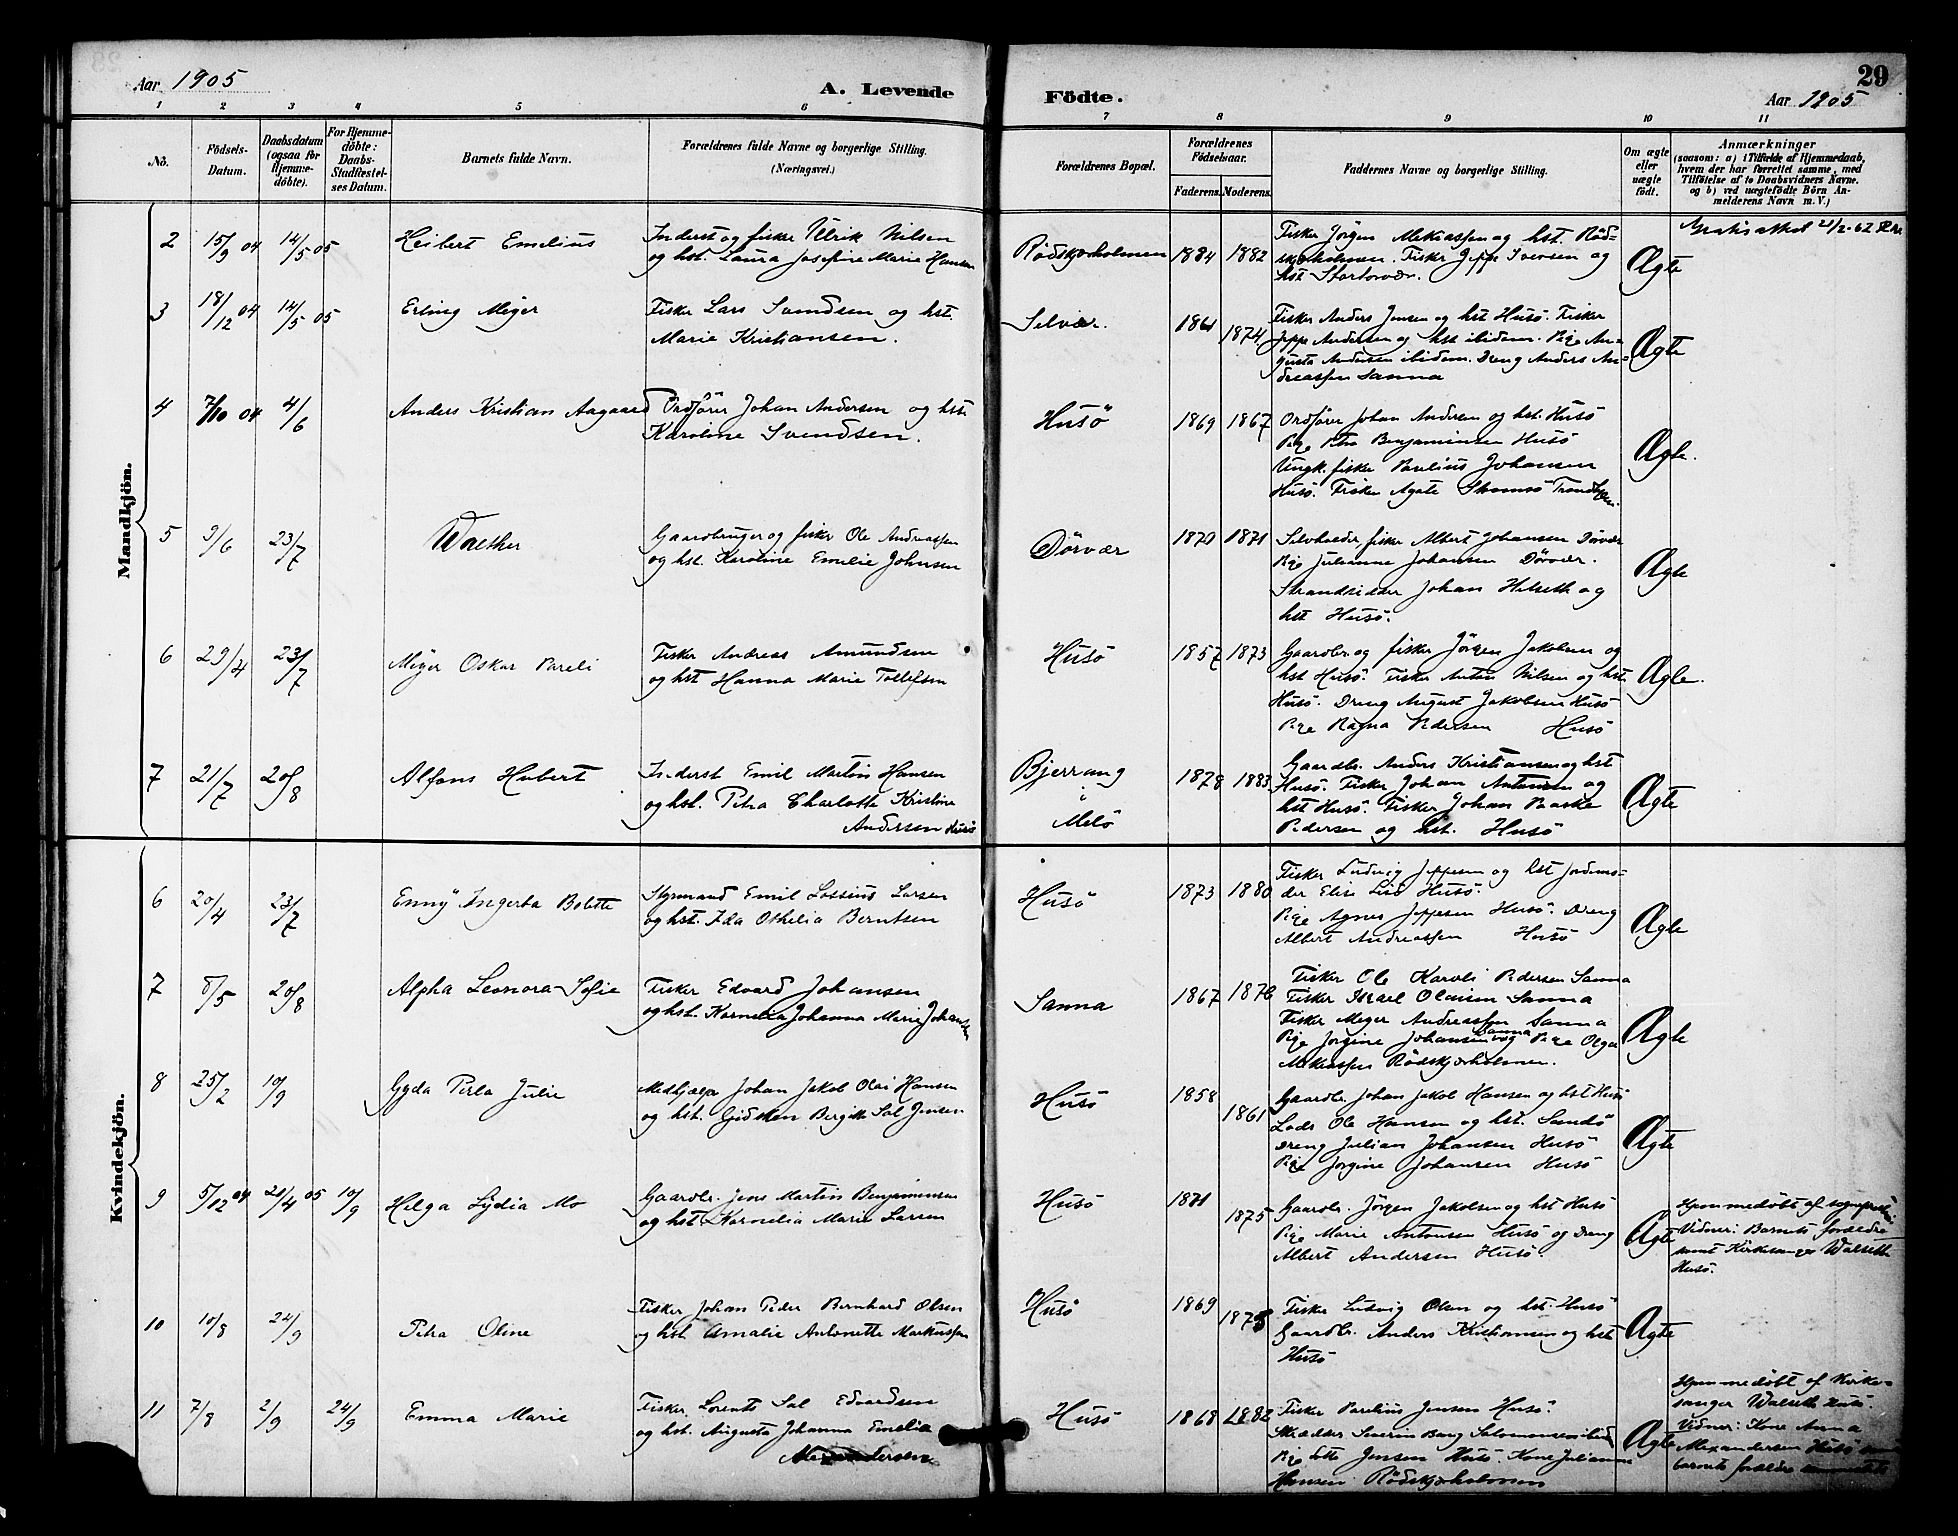 Aar 1905
A. Levende
Födte.
29
Aar 1905
1 2 3 4 5 6 7 8 9 10 11
No.
Födsels-
Datum.
Daabsdatum
(ogsaa for
Hjemme-
döbte).
For Hjemme-
döbte:
Daabs-
Stadfæstel-
ses Datum.
Barnets fulde Navn.
Forældrenes fulde Navne og borgerlige Stilling.
(Næringsvei.)
Forældrenes Bopæl.
Forældrenes
Födselsaar.
Faderens. Moderens.
Faddernes Navne og borgerlige Stilling.
Om ægte
eller
uægte
födt.
Anmærkninger
(saasom: a) i Tilfælde af Hjemmedaab,
hvem der har forrettet samme, med
Tilföielse af to Daabsvidners Navne.
og b) ved uægtefödte Börn An-
melderens Navn m. V.)
Mandkjön.
2 15/9 04 14/5 05 Leibert Emelius
Inderst og fisker Ulrik Nilsen
og hst. Laura Josefine Marie Hansen
Rødskjærholmen 1884 1882
Fisker Jörgen Mekiassen og hst. Röd-
skjærholmen. Fisker Jepp Iversen og
hst
Ægte
21/2-62
3 18/12 04 14/5 05 Erling Meyer
Fisker Lars Svendsen og hst.
Marie Kristiansen.
Selvær. 1861 1874
Fisker Anders Jensen og hst Husö. Fisker
Jepp Andersen og hst ibidem. Pige Au-
gusta Andersen ibidem. Dreng Anders An-
dreassen Sanna
Ægte
4 7/10 04 4/6 Anders Kristian Aagaard
Ordförer Johan Andersen og hst.
Karoline Svendsen.
Husö 1869 1867
Ordförer Johan Andersen og hst. Husö
Pige Petra Benjaminsen Husö
Ungk. fisker Paulius Johansen
Husö. Fisker Agate
Ægte.
5 3/6 23/7 Walther
Gaardbruger og fisker Ole Andreassen
og hst. Karoline Emelie Johnsen
Dörvær 1870 1871
Selveier, fisker Albert Johansen Dörvær
Pige Julianne Johansen Dörvær.
Strandsidder Johan Helseth og
hst Husö.
Ægte
6 29/4 23/7 Meyer Oskar Pareli
Fisker Andreas Amundsen
og hst Hanna Marie Tollefsen
Husö 1857 1873
Gaardbr og fisker Jörgen Jakobsen og
hst Husö. Fisker Anton Nilsen og hst.
Husö. Dreng August Jakobsen Husö
Pige Ragna Pedersen Husö
Ægte.
7 21/7 20/8 Alfons Hubert
Inderst Emil Martin Hansen
og hst. Petra Charlotte Kristine
Andersen Husö
Bjerrang
i
Melö
1878 1883
Gaardbr. Anders Kristiansen og hst
Husö. Fisker Johan Antonsen og
hst Husö. Fisker Johan Baske
Pedersen og hst. Husö
Ægte
Kvindekjön.
6 20/4 23/7 Enny Ingerba Bolette
Styrmand Emil Lossius Larsen
og hst. Ida Othelia Berntsen
Husö 1873 1880
Fisker Ludvig Jeppesen og hst Jordmo-
der Elise Lisö Husö.
Pige Agnes Jeppesen Husö. Dreng
Albert Andreassen Husö
Ægte
7 8/5 20/8 Alpha Leonora Sofie
Fisker Edvard Johansen
og hst. Kornelia Johanna Marie Johansen
Sanna 1867 1876
Fisker Ole Karoli Pedersen Sanna
Fisker Israel Olausen Sanna
Fisker Meyer Andreassen Sanna
Pige Jorgine Johansen Sanna og Pige Olga
Mekiassen Rödskjærholmen.
Ægte
8 25/2 10/9 Gyda Perla Julie
Medhjælper Johan Jakob Olai Hansen
og hst. Gidsken Bergitte Sal Jensen
Husö 1858 1861
Gaardbr. Johan Jakob Hansen og hst Husö
Lods Ole Hansen og hst. Sandö
Dreng Julian Johansen Husö
Pige Jorgine Johansen Husö
Ægte
9 5/12 04 20/4 05 10/9 Helga Lydia Mo
Gaardbr. Jens Martin Benjaminsen
og hst Kornelia Marie Larsen
Husö 1871 1875
Gaardbr. Jörgen Jakobsen og hst Husö
Pige Marie Antonsen Husö og Dreng
Albert Andersen Husö.
Ægte
Hjemmedöbt af sogneprest
Vidner: Barnets forældre
samt Kirkesanger Walseth
Husö.
10 10/8 24/9 Petra Oline
Fisker Johan Peder Bernhard Olsen
og hst. Amalie Antonette Markussen
Husö 1869 1875
Fisker Ludvig Olsen og hst. Husö
Gaardbr. Anders Kristiansen og hst
Husö
Ægte
11 7/8 2/9 24/9 Emma Marie
Fisker Lorents Sal Edvardsen
og hst. Augusta Johanna Emelie
Alexandersen
Husö 1868 1882
Fisker Paulius Jensen Husö.
Skrædder Severin Berg Salomonsen ibid
Pige Jensen Husö. Kone Julianne
Hansen Rödskjærholmen
Ægte
Hjemmedöbt af Kirke-
sanger Walseth Husö.
Vidner: Kone Anna
Alexandersen Husö
barnets forældre